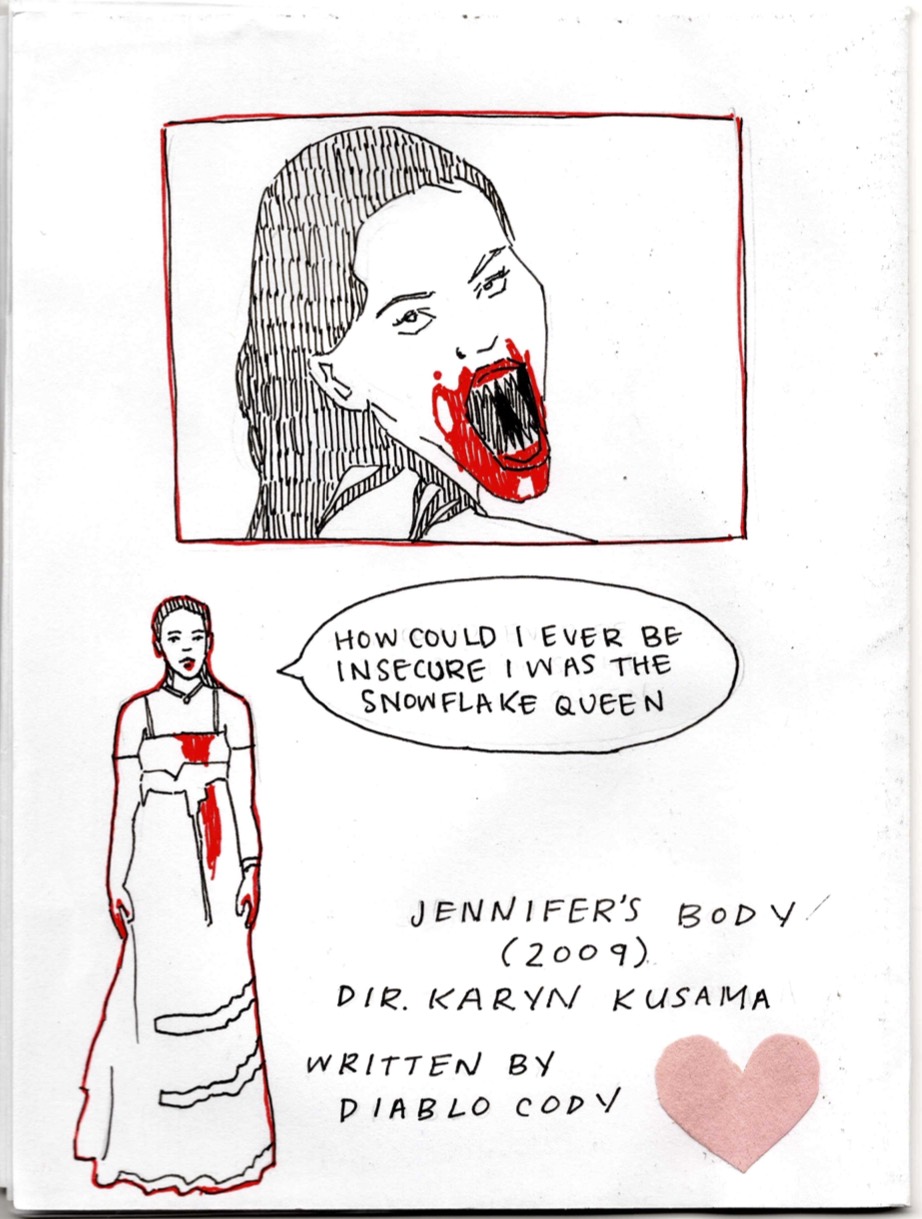 HOW COULD I EVER BE
INSECURE I WAS THE
SNOWFLAKE QUEEN
JENNIFER'S BODY
(2009)
DIR. KARYN KUSAMA
WRITTEN BY
DIABLO CODY